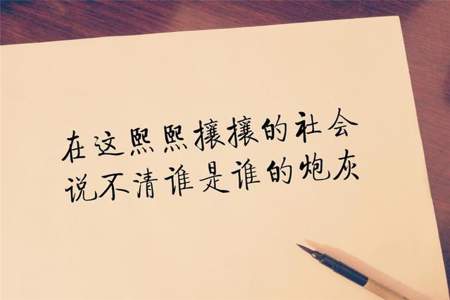 在这熙熙攘攘的社会
说不清谁是谁的炮灰